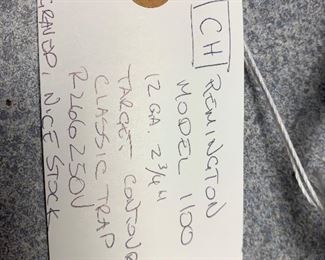 CH
REMINGTON
MODEL 1100
12 GA. 2 3/4"
TARGET CONTOUR
CLASSIC TRAP
R266250V
NICE STOCK